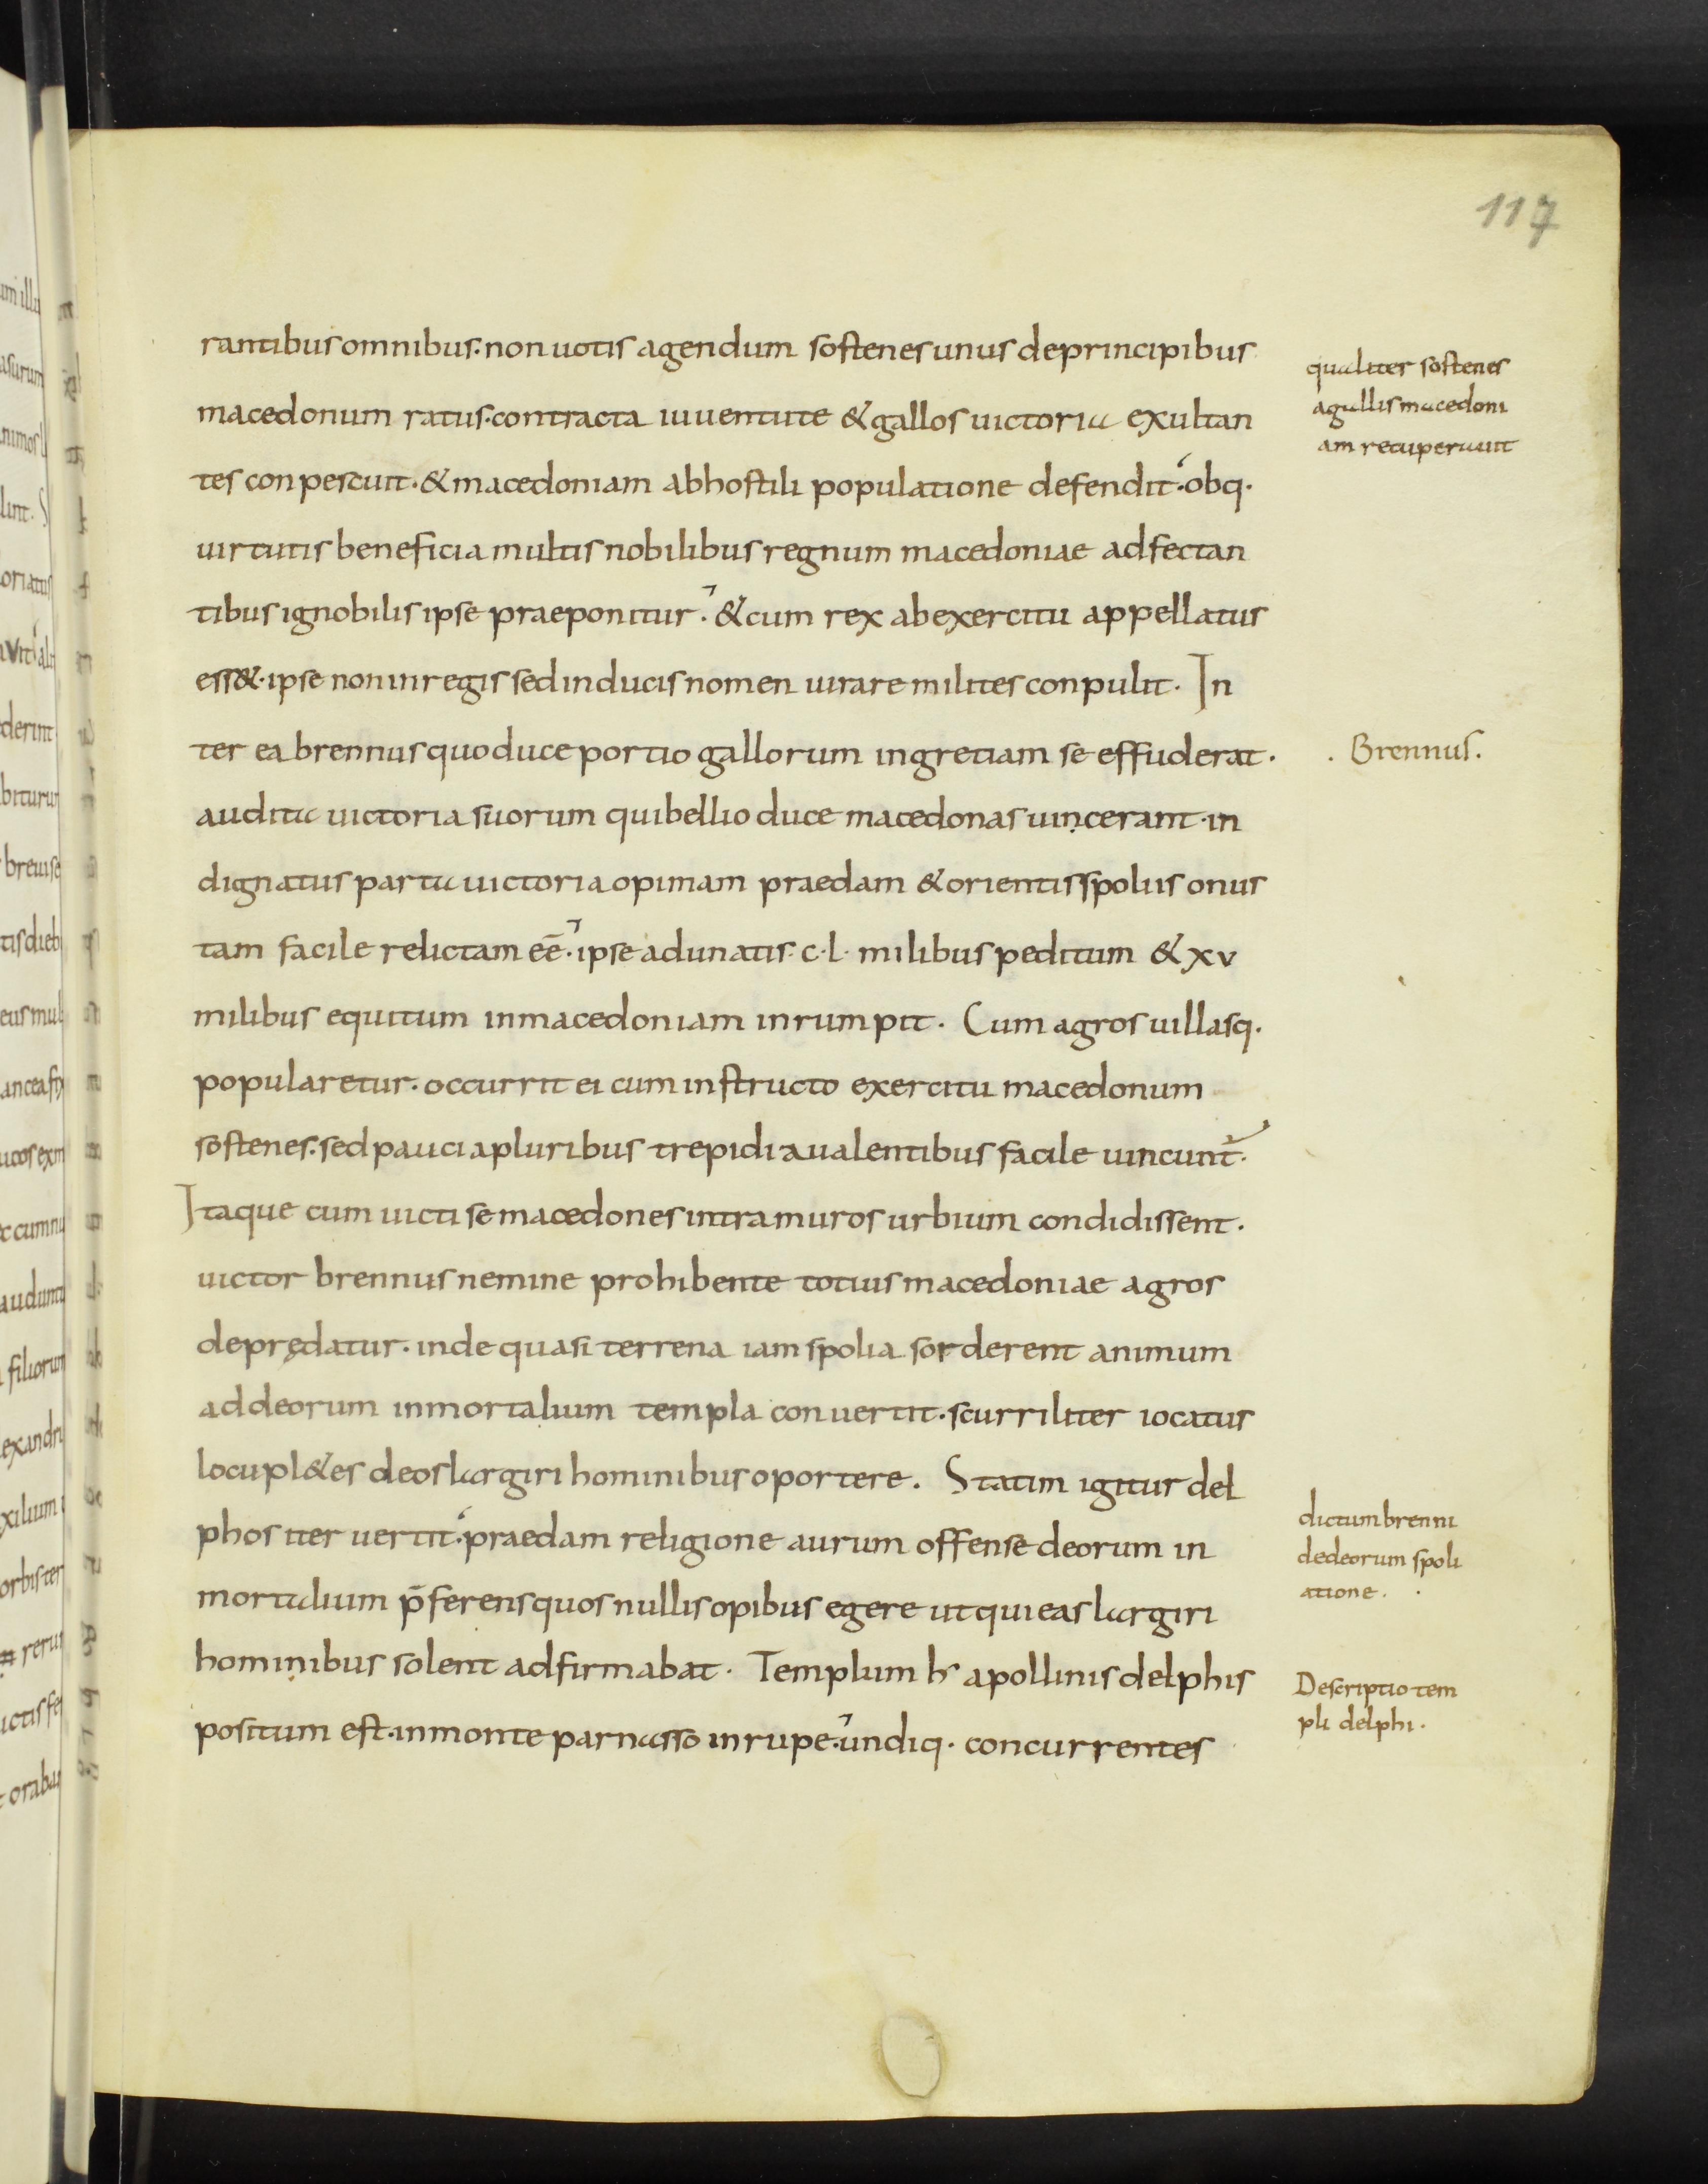 117
rantibus omnibus. non uotis agendum sostenes unus deprincipibus
macedonum ratus. contracta iuuentute & gallos uictoria exultan
tes conpescuit. & macedoniam abhostili populatione defendit. obq.
uirtutis beneficia multis nobilibus regnum macedoniae adfectan
tibus ignobilis ipse praeponitur. & cum rex abexercitu appellatus
ess&. ipse noninregis sed inducis nomen iurare milites conpulit. In
ter ea brennus quo duce portio gallorum ingretiam se effuderat.
audita uictoria suorum qui bellio duce macedonas uincerant. in
dignatus parta uictoria opimam praedam & orientis spoliis onus
tam facile relictam eē. ipse adunatis. c. l. milibus peditum & xv
milibus equitum inmacedoniam inrumpit. Cum agros uillasq.
popularetur. occurrit ei cum instructo exercitu macedonum
sostenes. sed pauci apluribus trepidi aualentibus facile uincunt᷑.
Itaque cum uicti se macedones intra muros urbium condidissent.
uictor brennus nemine prohibente totius macedoniae agros
deprędatur. inde quasi terrena iam spolia sorderent animum
addeorum inmortalium templa conuertit. scurriliter iocatus
locupl&es deos largiri hominibus oportere. Statim igitur del
phos iter uertit. praedam religione aurum offense deorum in
mortalium p̄ferens quos nullis opibus egere ut qui eas largiri
hominibus solent adfirmabat. Templum h' apollinis delphis
positum est. inmonte parnasso inrupe. undiq. concurrentes
qualiter sostenes
agallis macedoni
am recuperauit
. Brennus.
dictum brenni
dedeorum spoli
atione.
Descriptio tem
pli delphi.